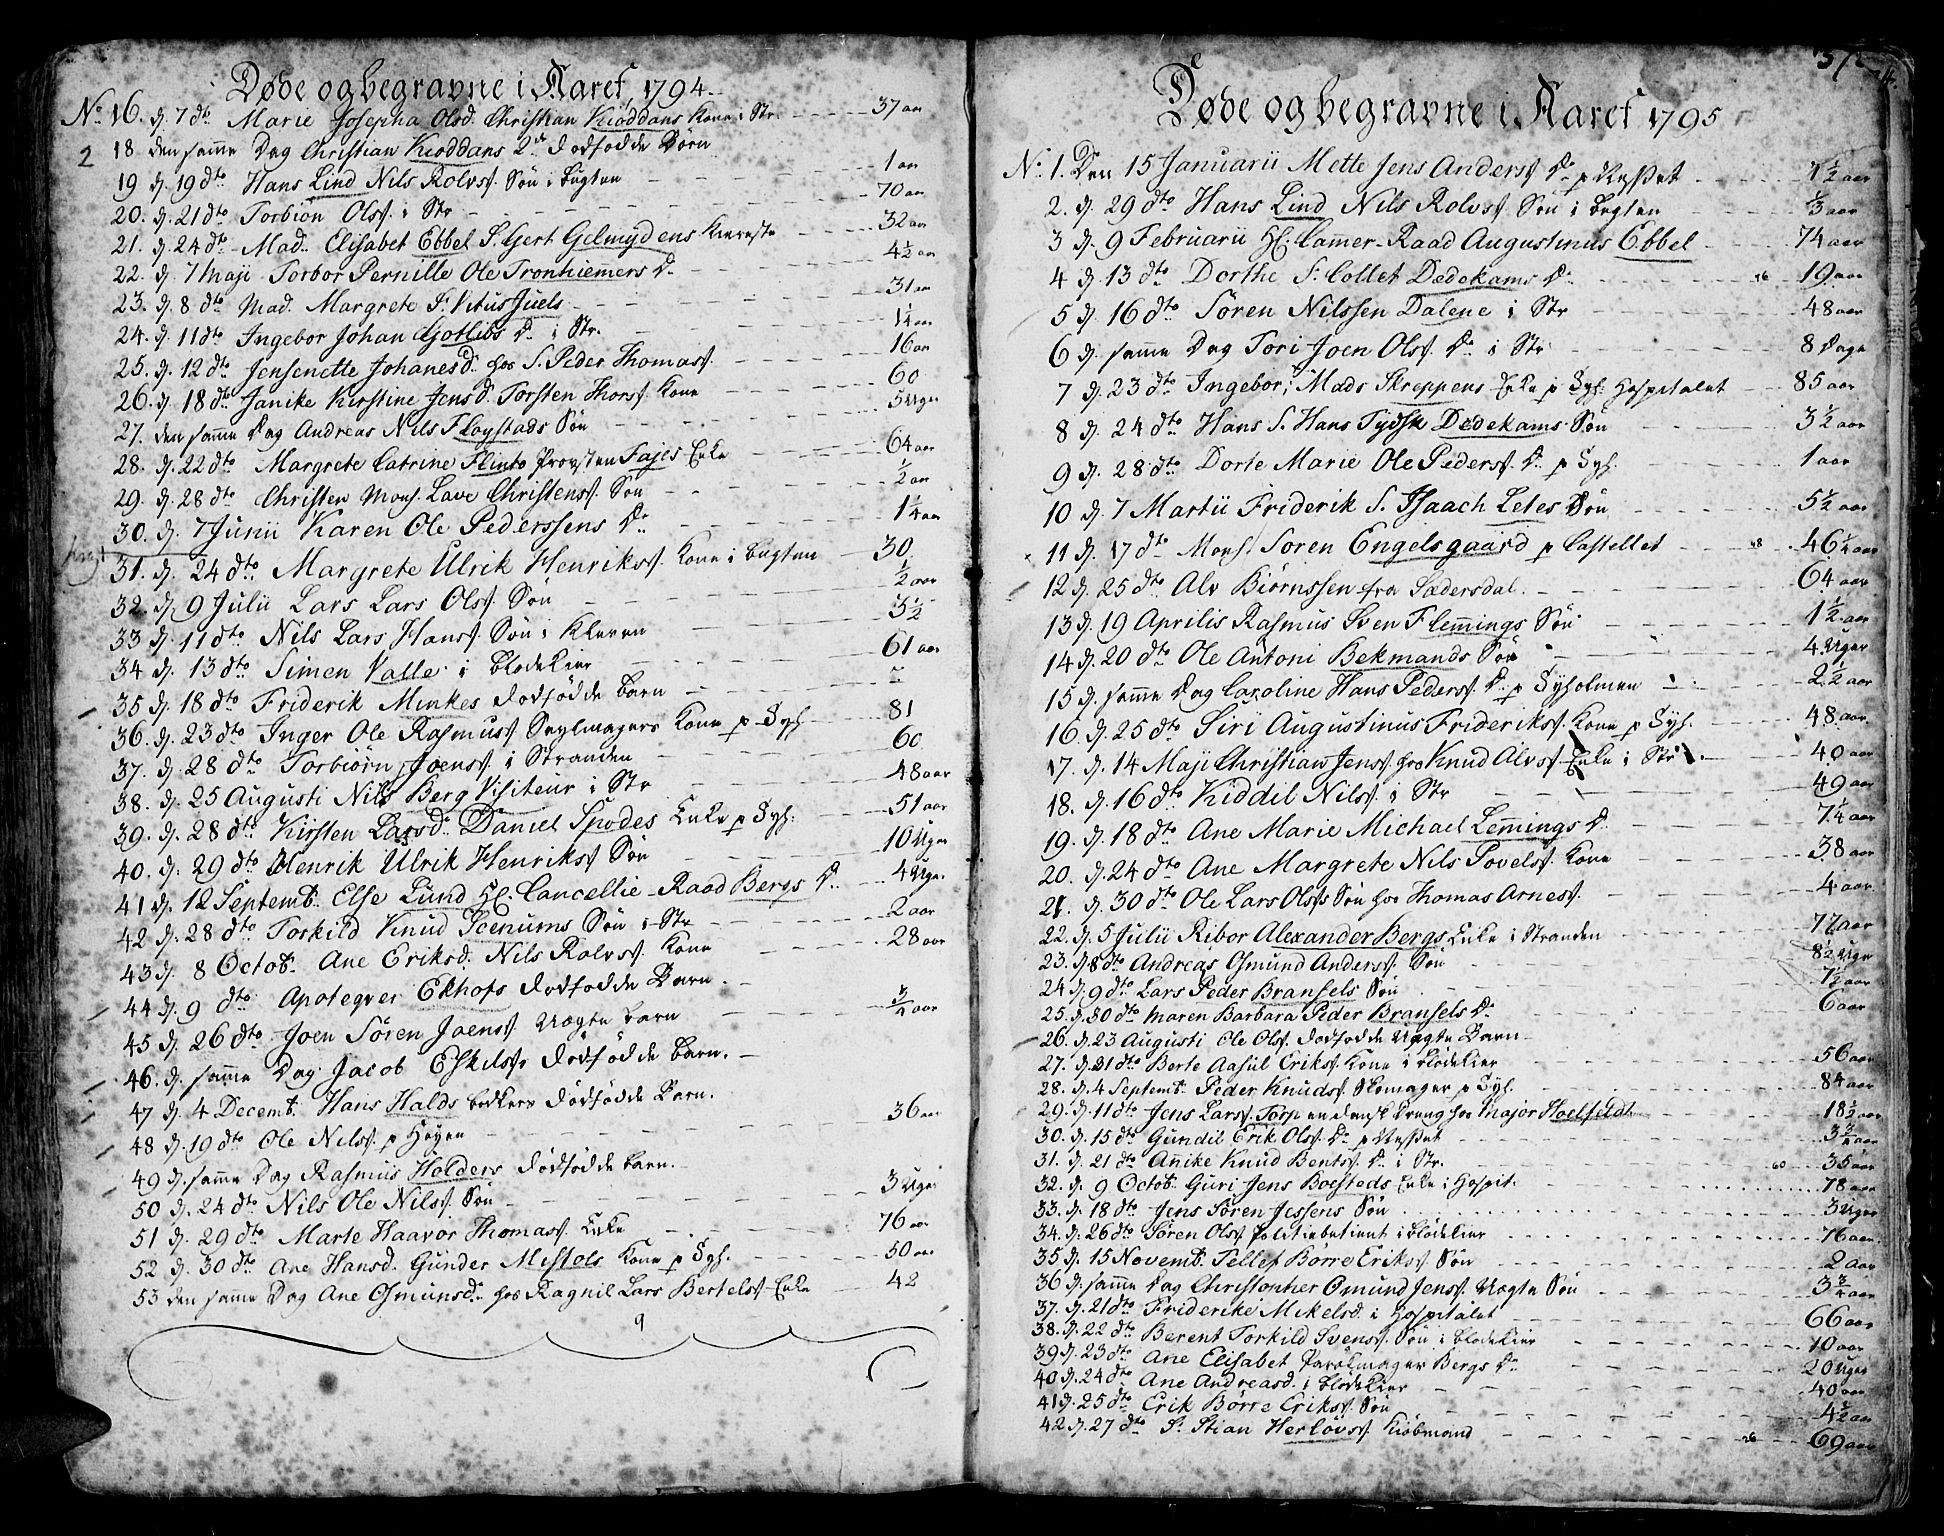 Døde og begravne i Aaret 1794
No 16. d. 7 dto Marie Josepha Olsd. Christian Kioddans Kone i Str. 37 aar
2 18 den samme Dag Christian Kioddans 2de dødfødde Børn
19 d. 19 dto Hans Lind Nils Rolvs. Søn i bugten 1 aar
20. d. 21 dto Torbiøn Ols. i Str 70 aar
21. d. 24 dto Mad. Elisabet Ebbel S. Gert Gelmydens Kiereste 32 aar
22. d. 7 Maji Torbor Pernille Ole Tronhiemers Dr. 4½ aar
23. d. 8 dto Mad. Margrete S. Vitus Juels 31 aar
24. d. 11 dto Ingebor Johan Gotlibs Dr. i Str. 1¼ aar
25. d. 12 dto Jensenette Johanesd. hos S. Peder Thomas. 16 aar
26. d. 18 dto Janike Kirstine Jensd. Torsten Thors. Kone 60
27. den samme Dag Andreas Nils Fløystads Søn 5 Uger
28. d. 22 dto Margrete Catrine Flinto Provsten Fajes Enke 64 aar
29. d. 28 dto Christen Mons. Lave Christens. Søn ½ aar
30. d. 7 Junii Karen Ole Pederssens Dr. 1¼ aar
31. d. 24 dto Margrete Ulrik Henriks. Kone i bugten 30
32. d. 9 Julii Lars Lars Ols. Søn ½ aar
33 d. 11 dto Nils Lars Hans. Søn i Kleven 5½
34 d. 13 dto Simen Valle i blødekier 61 aar
35 d. 18 dto Friderik Minkes dødfødde barn
36. d. 23 dto Inger Ole Rasmus. Seylmagers Kone p Tyh. 81
37. d. 28 dto Torbiørn Joens. i Stranden 60
38. d. 25 Augusti Nils Berg Visiteur i Str 48 aar
39. d. 28 dto Kirsten Larsd. Daniel Spodes Enke p Tyh. 51 aar
40. d. 29 dto Henrik Ulrik Henriks. Søn 10 Uger
41 d. 12 Septemb. Else Lund Hl. Cancellie-Raad Bergs Dr. 4 Uger
42 d. 28 dto Torkild Knud Icenums Søn i Str 2 aar
43 d. 8 Octob. Ane Eriksd. Nils Rolvs. Kone 28 aar
44 d. 9 dto Apoteqver Ekhofs dødfødde Barn.
45 d. 26 dto Joen Søren Joens. Uægte barn ¾ aar
46. d. samme Dag Jacob Eskils. dødfødde barn.
47 d. 4 Decemb. Hans Halds bødkers dødfødde Barn.
48 d. 19 dto Ole Nils. p Høyen 36 aar
49 d. samme Dag Rasmus Holders dødfødde barn.
50 d. 24 dto Nils Ole Nils. Søn 3 Uger
51 d. 29 dto Marte Haavor Thomas. Enke 76 aar
52 d. 30 dto Ane Hansd. Gunder Mistols Kone p Tyh. 50 aar
53 den samme Dag Ane Osmunsdr. hos Ragnil Lars Bertels. Enke 42
9
Døde og begravne i Aaret 1795
No 1. Den 15 Januarii Mette Jens Anders. Dr. p Næsset 1½ aar
2. d. 29 dto Hans Lind Nils Rolvs. Søn i bugten ⅓ aar
3 d. 9 Februarii Hl. Camer-Raad Augustinus Ebbel 74 aar
4 d. 13 dto Dorthe S. Collet Dedekams Dr. 19 aar
5 d. 16 dto Søren Nilssen Dalene i Str 48 aar
6 d. samme Dag Tori Joen Ols. Dr. i Str 8 Dage
7 d. 23 dto Ingebor, Mads Skreppens Enke p Tyh. Hospitalet 85 aar
8 d. 24 dto Hans S. Hans Tydsk Dedekams Søn 3½ aar
9 d. 28 dto Dorte Marie Ole Peders. Dr. p Tyh. 1 aar
10 d. 7 Martii Friderik S. Isaach Letes Søn 5½ aar
11 d. 17 dto Mons. Soren Engelsgaard p Castellet 46¼ aar
12 d. 25 dto Alv Biørnssen fra Sædersdal. 64 aar
13 d. 19 Aprilis Rasmus Sven Flemings Søn 1½ aar
14 d. 20 dto Ole Antoni Bekmands Søn 4 Uger
15 d. samme Dag Caroline Hans Peders. Dr. p Tyholmen 2½ aar
16. d. 25 dto Siri Augustinus Frideriks. Kone p Tyh. 48 aar
17. d. 14 Maji Christian Jens. hos Knud Alvs. Enke i Str 40 aar
18. d. 16 dto Kiddil Nils. i Str 49 aar
19. d. 18 dto Ane Marie Michael Lemings Dr. 7¼ aar
20. d. 24 dto Ane Margrete Nils Povels. Kone 38 aar
21. d. 30 dto Ole Lars Ols. Søn hos Thomas Arnes. 4 aar
22. d. 5 Julii Ribor Alexander Bergs Enke i Stranden 77 aar
23. d. 8 dto Andreas Osmund Anders. Søn 8½ Uger
24 d. 9 dto Lars Peder Bransels Søn 7½ aar
25. d. 30 dto Maren Barbara Peder Bransels Dr. 6 aar
26. d. 23 Augusti Ole Ols. dødfødde Uægte Barn
27. d. 31 dto Berte Aasul Eriks. Kone i blødekier 56 aar
28. d. 4 Septemb. Peder Knuds. Skomager p Tyh. 84 aar
29. d. 11 dto Jens Lars. Torp en dansk Dreng hos Major Hoelfeldt 18½ aar
30. d. 15 dto Gundil Erik Ols. Dr. p Næsset 3¾ aar
31. d. 21 dto Anike Knud Bents. Dr. i Str. 35 aar
32. d. 9 Octob. Guri Jens Boesteds Enke i Hospit. 78 aar
33. d. 18 dto Jens Søren Jessens Søn 3 Uger
34. d. 26 dto Søren Ols. Politiebetient i blødekier 76 aar
35 d. 15 Novemb. Tellef Børre Eriks. Søn 2 aar
36 d. samme Dag Christopher Osmund Jens. Uægte Søn 3¾ aar
37. d. 21 dto Friderike Mikelsd. i Hospitalet 66 aar
38. d. 22 dto Berent Torkild Svens. Søn i blødekier 10 aar
39 d. 23 dto Ane Elisabet Parølmager Bergs Dr. 20 Uger
40 d. 24 dto Ane Andreasd. i blødekier 40 aar
41 d. 25 dto Erik Børre Eriks. Søn 4½ aar
42 d. 27 dto S. Stian Herløvs. Kiøbmand 69 aar